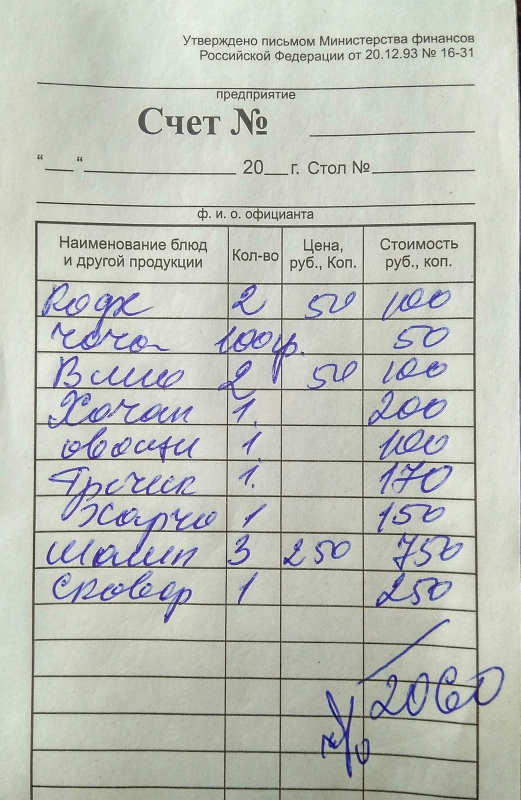 Утверждено письмом Министерства финансов
Российской Федерации от 20.12.93 № 16-31
предприятие
Счет №
“ “ 20 г. Стол №
ф. и. о. официанта
Наименование блюд и другой продукции Кол-во Цена, руб., Коп. Стоимость руб., коп.
2 50 100
чача 100гр. 50
Вино 2 50 100
Хачап 1. 200
овощи 1 100
Гречик 1. 170
Харчо 1 150
Шашл 3 250 750
Сковор 1 250
2060